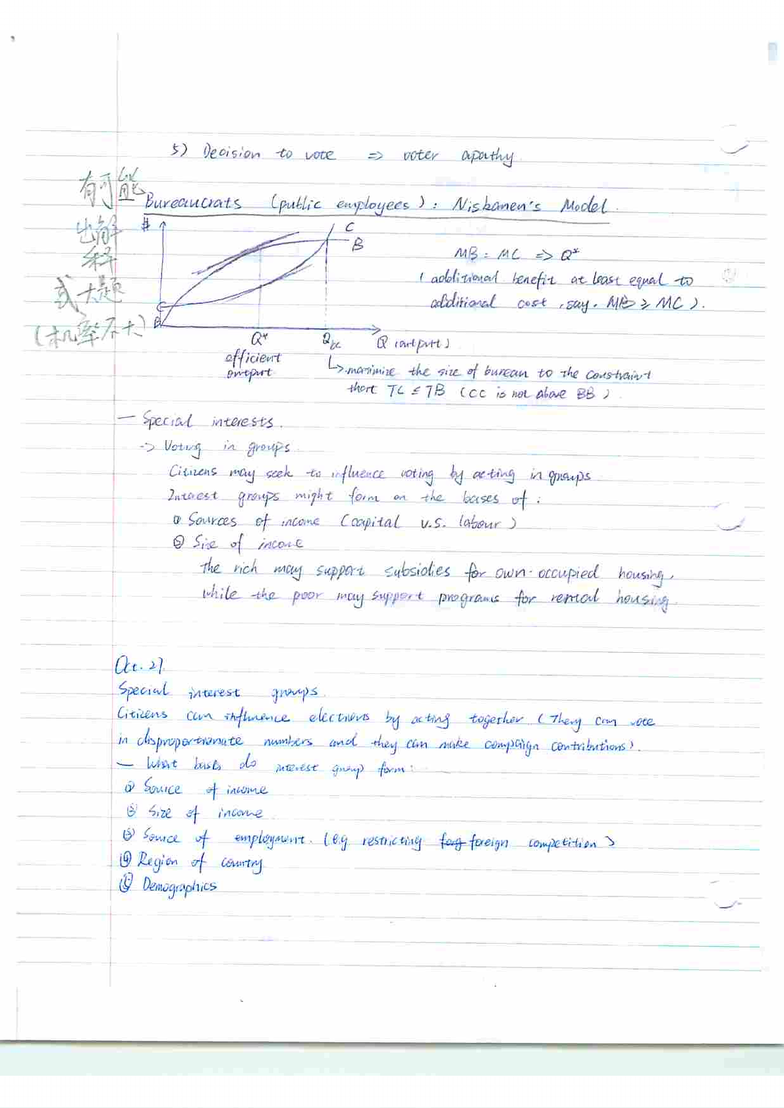 5) Decision to vote => voter apathy
有可能
出解
释
或大题
(机率不大)
Bureaucrats (public employees): Niskanen's Model.
$
C
B
C
B
Q*
Qbc
Q (output)
efficient
output
MB = MC => Q*
( additional benefit at least equal to
additional cost, say. MB ≥ MC ).
↳ maximize the size of bureau to the constraint
that TC ≤ TB (CC is not above BB).
— Special interests.
-> Voting in groups
Citizens may seek to influence voting by acting in groups
Interest groups might form on the bases of :
① Sources of income (capital v.s. labour)
② Size of income
the rich may support subsidies for own-occupied housing,
while the poor may support programs for rental housing
Oct. 27
Special interest groups
Citizens can influence elections by acting together (They can vote
in disproportionate numbers and they can make campaign contributions).
— What basis do interest group form:
① Source of income
② Size of income
③ Source of employment. (eg restricting foreign competition)
④ Region of country
⑤ Demographics